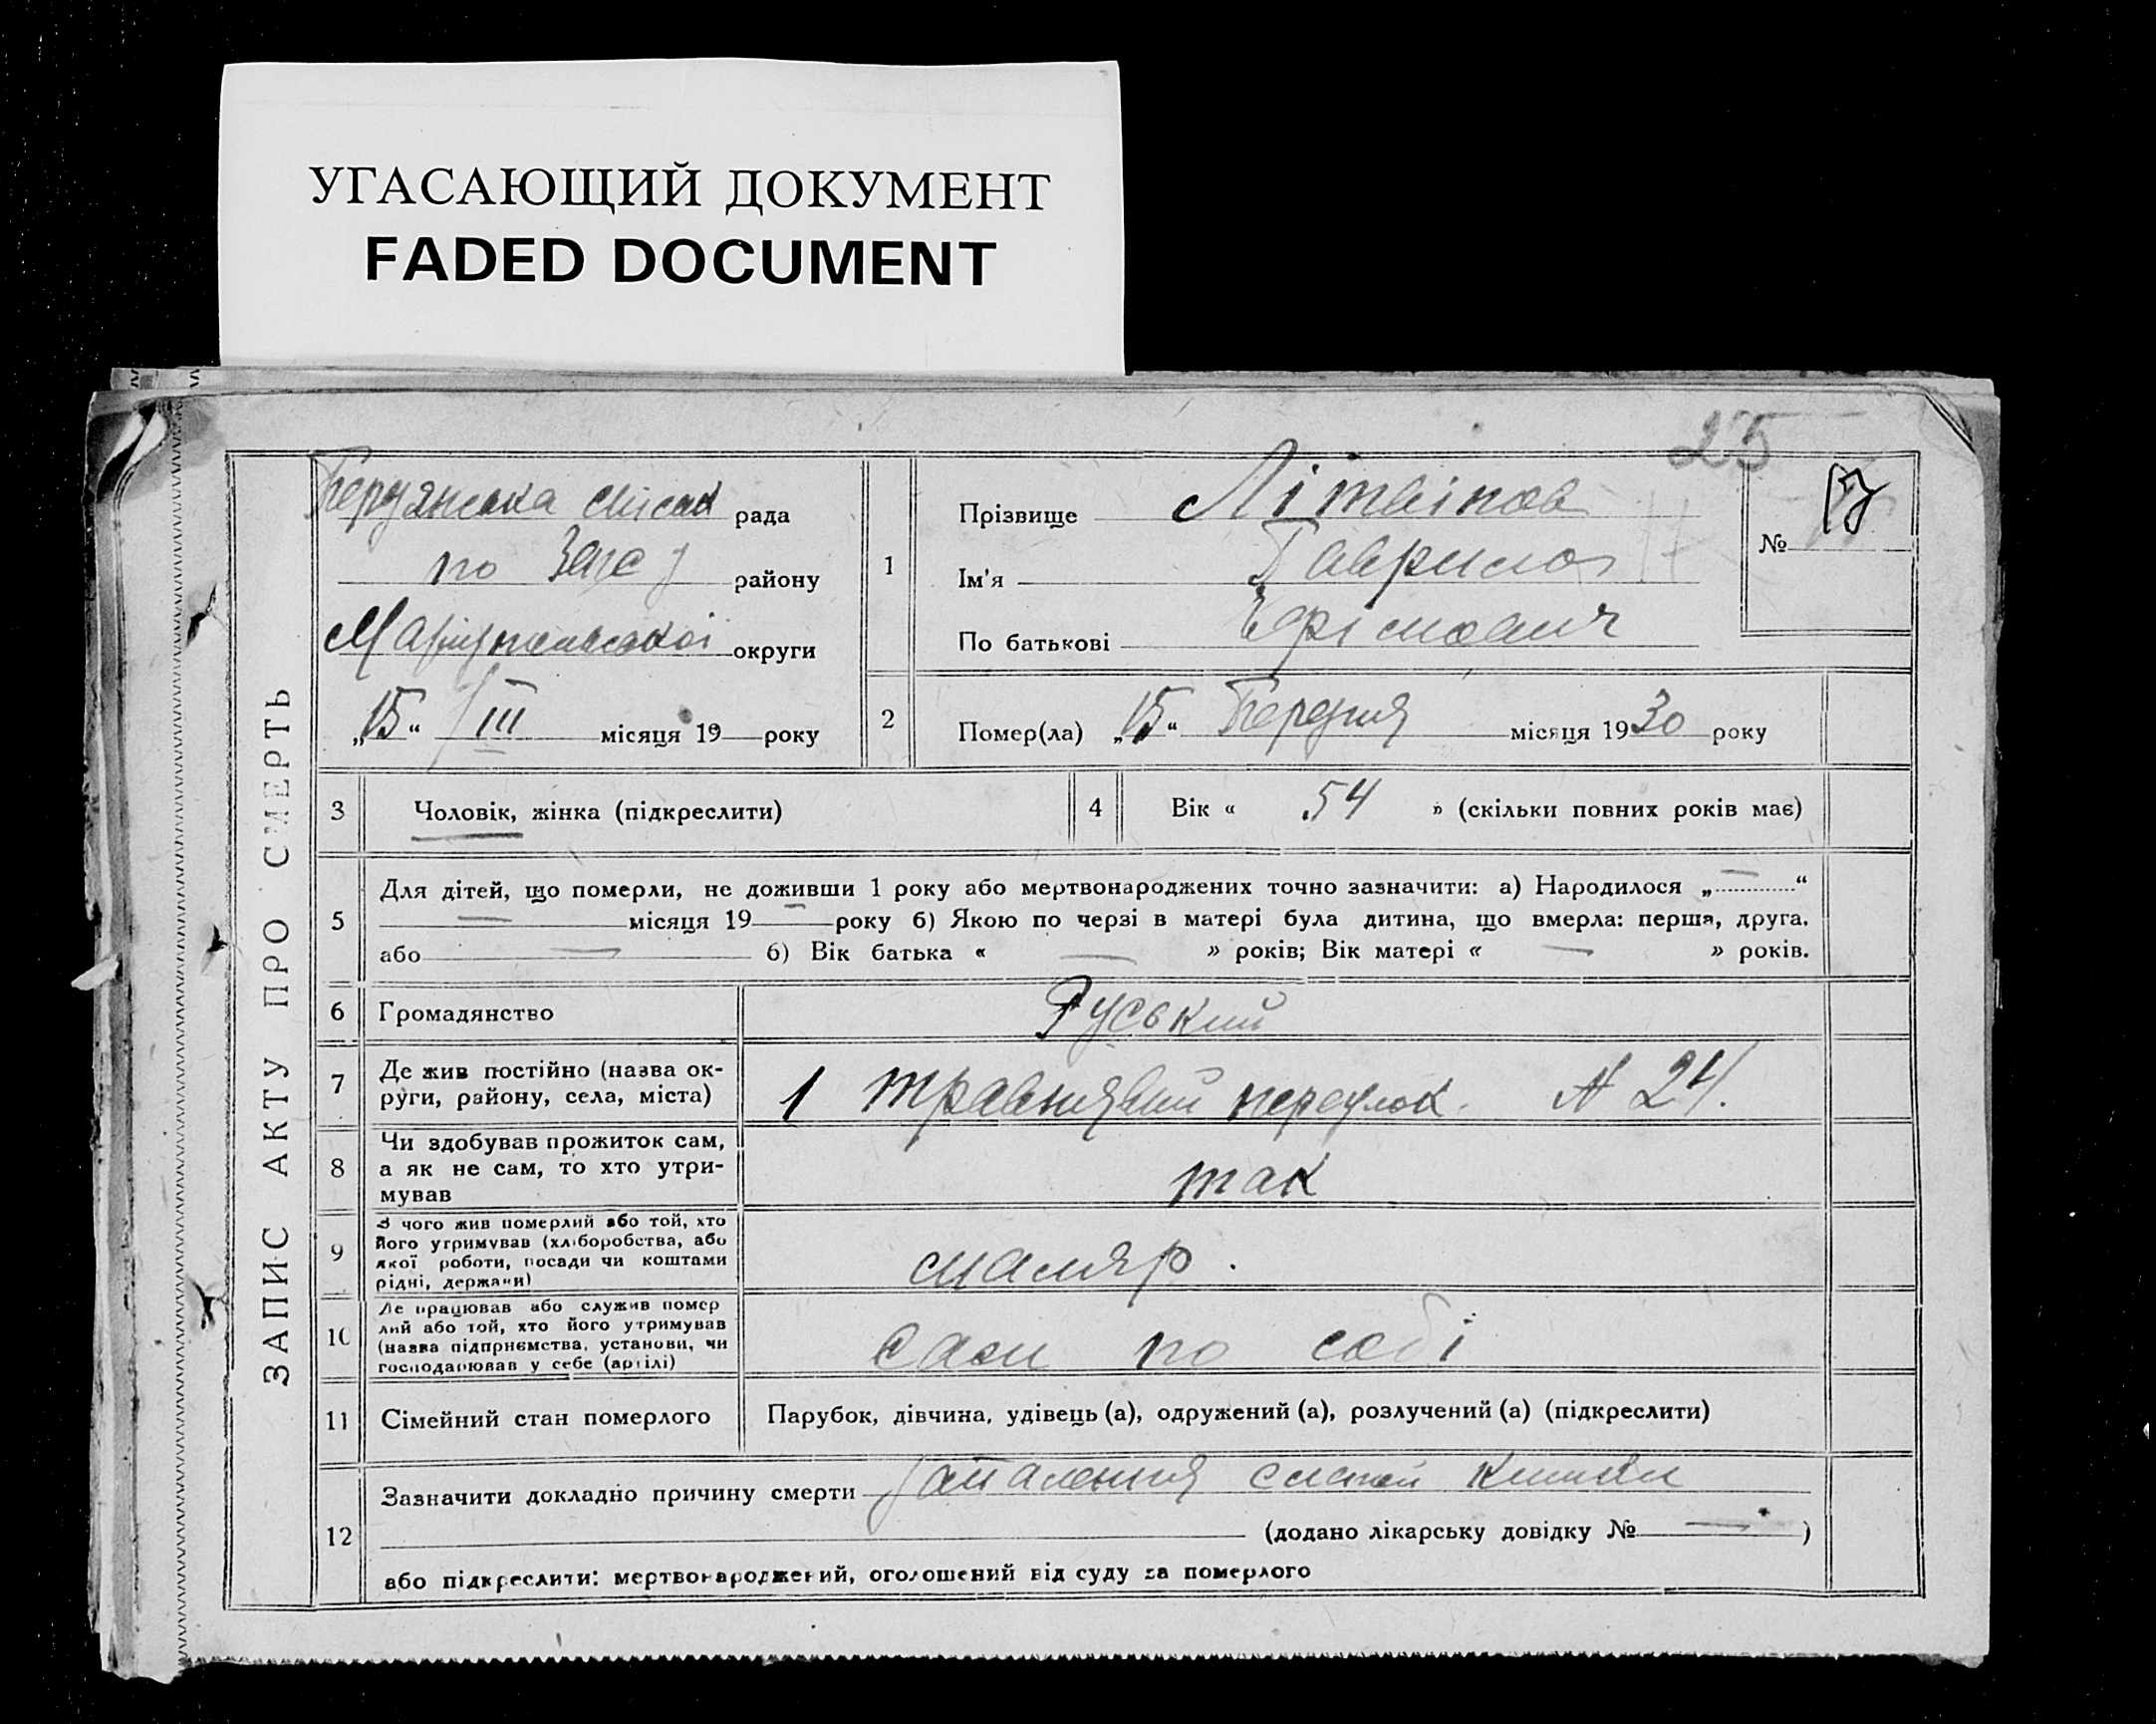 УГАСАЮЩИЙ ДОКУМЕНТ
FADED DOCUMENT
25
ЗАПИС АКТУ ПРО СМЕРТЬ
Бердянська міськ рада
по району
Маріупольської округи
„15“ III місяця 19 року
1
Прізвище Літвінов
Ім'я Гаврило
По батькові Єфімович
№
2
Помер(ла) „15“ Березня місяця 1930 року
3
Чоловік, жінка (підкреслити)
4
Вік « 54 » (скільки повних років має)
5
Для дітей, що померли, не доживши 1 року або мертвонароджених точно зазначити: а) Народилося „—“
— місяця 19 — року б) Якою по черзі в матері була дитина, що вмерла: перша, друга.
або — б) Вік батька « — » років; Вік матері « — » років.
6
Громадянство
Руський
7
Де жив постійно (назва ок-
руги, району, села, міста)
1 травневий переулок. № 24.
8
Чи здобував прожиток сам,
а як не сам, то хто утри-
мував
так
9
З чого жив померлий або той, хто
його утримував (хліборобства, або
якої роботи, посади чи коштами
рідні, держани)
маляр.
10
Де працював або служив помер
лий або той, хто його утримував
(назва підприємства, установи, чи
господарював у себе (артілі)
Сам по собі
11
Сімейний стан померлого
Парубок, дівчина, удівець (а), одружений (а), розлучений (а) (підкреслити)
12
Зазначити докладно причину смерти запалення сліпой кишки
(додано лікарську довідку № — )
або підкреслити: мертвонароджений, оголошений від суду за померлого